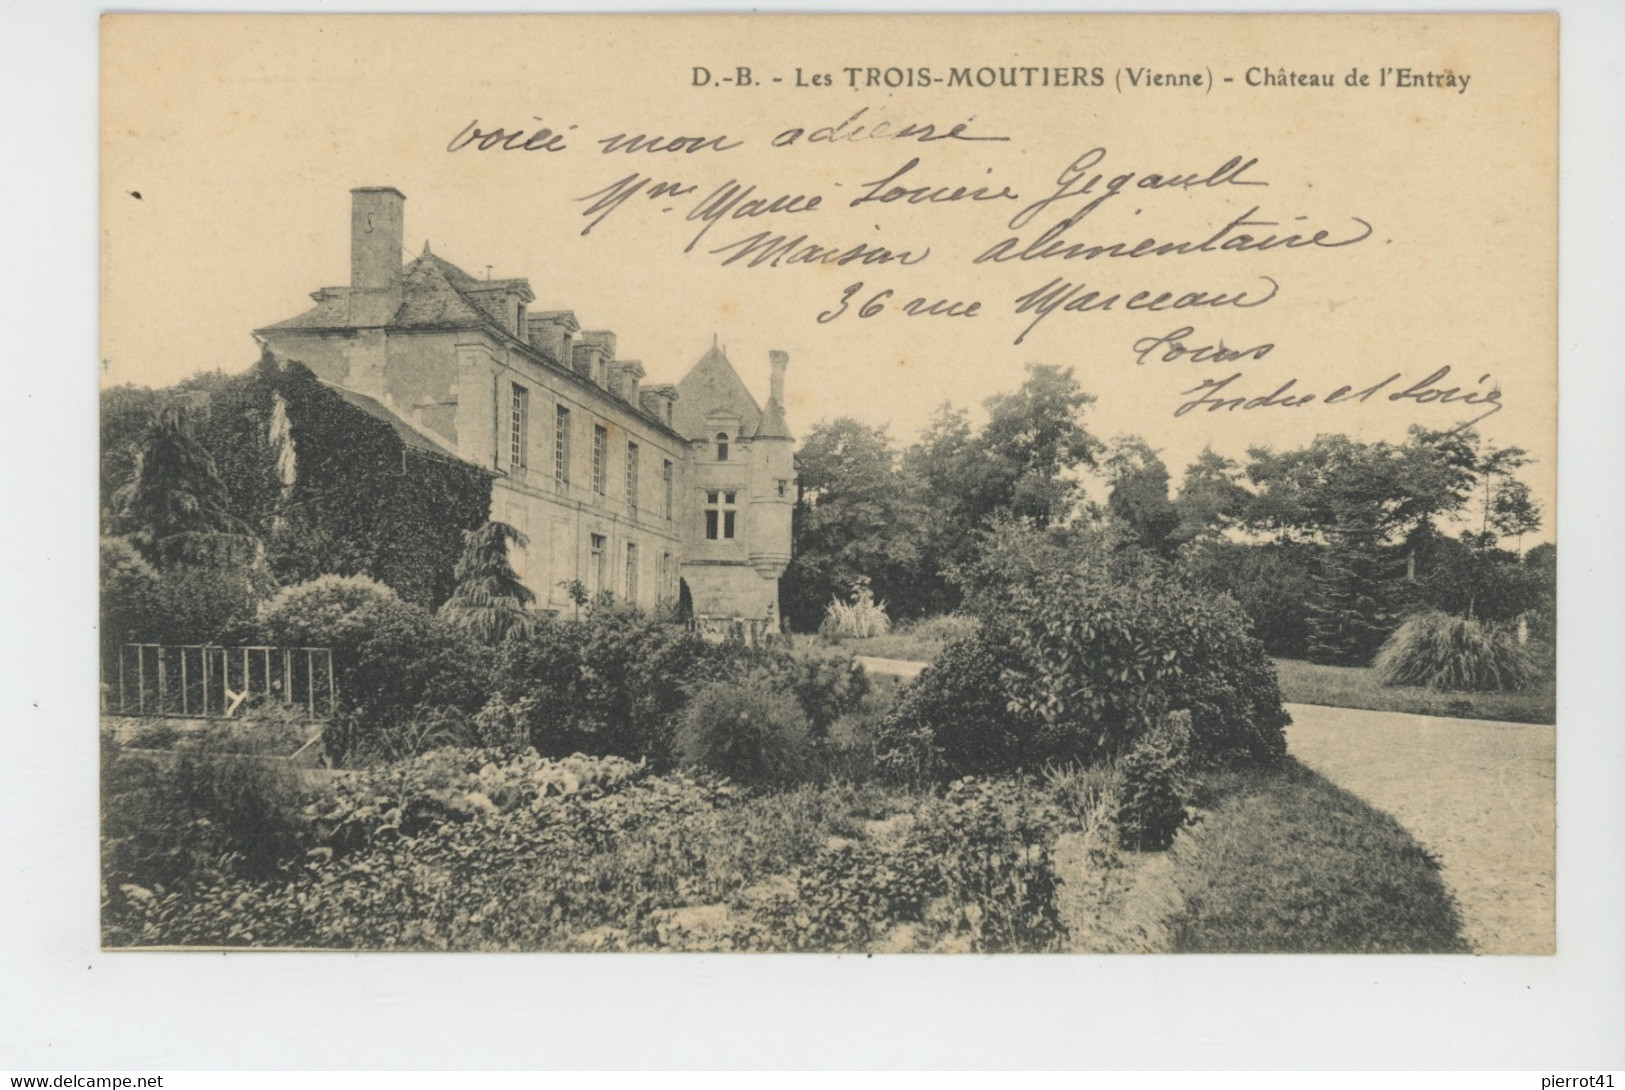 D.-B. - Les TROIS-MOUTIERS (Vienne) - Château de l'Entray
voici mon adresse
Mme Marie Louise Gegault
Maison alimentaire
36 rue Marceau
Tours
Indre et Loire
www.delcampe.net
pierrot41